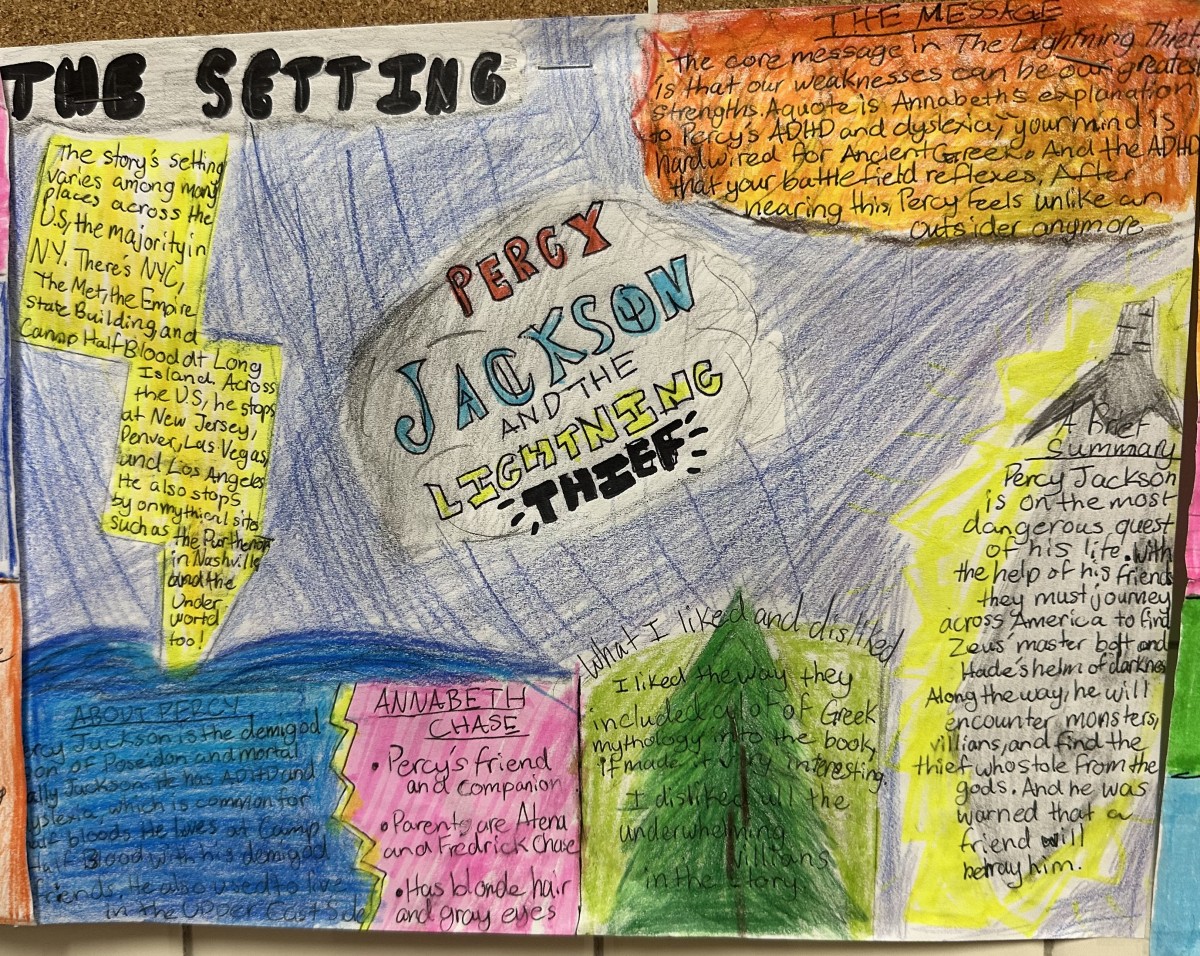 THE SETTING
The story's setting
varies among many
places across the
U.S, the majority in
N.Y. There's NYC,
The Met, the Empire
State Building, and
Camp Half Blood at Long
Island. Across
the U.S, he stops
at New Jersey,
Denver, Las Vegas,
and Los Angeles
He also stops
by on mythical sites
such as the Parthenon
in Nashville
and the
Under
world
too!
PERCY
JACKSON
AND THE
LIGHTNING
THIEF
THE MESSAGE
The core message in The Lightning Thief
is that our weaknesses can be our greatest
strengths. A quote is Annabeth's explanation
to Percy's ADHD and dyslexia, "your mind is
hard wired for Ancient Greek. And the ADHD
that your battlefield reflexes, After
hearing this, Percy feels unlike an
outsider anymore
A Brief
Summary
Percy Jackson
is on the most
dangerous quest
of his life. With
the help of his friends
they must journey
across America to find
Zeus' master bolt and
Hade's helm of darkness
Along the way, he will
encounter monsters,
villians, and find the
thief who stole from the
gods. And he was
warned that a
friend will
betray him.
ABOUT PERCY
Percy Jackson is the demigod
son of Poseidon and mortal
Sally Jackson. He has ADHD and
dyslexia, which is common for
half bloods. He lives at Camp
Half Blood with his demigod
friends. He also used to live
in the Upper East Side
ANNABETH
CHASE
• Percy's friend
and companion
• Parents are Atena
and Fredrick Chase
• Has blonde hair
and gray eyes
What I liked and disliked
I liked the way they
included a lot of Greek
mythology into the book,
if made it very interesting.
I disliked all the
underwhelming
villians
in the story.